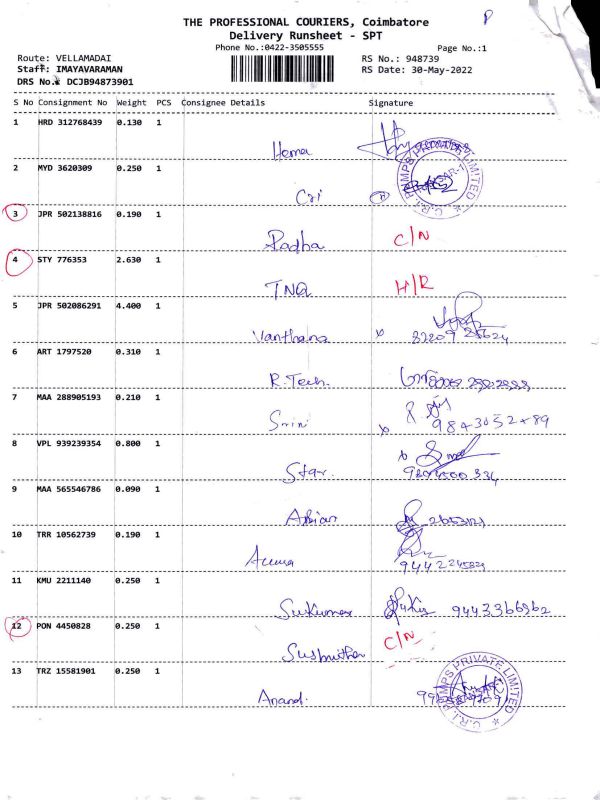 P
THE PROFESSIONAL COURIERS, Coimbatore
Delivery Runsheet - SPT
Phone No.:0422-3505555
Page No.:1
Route: VELLAMADAI
RS No.: 948739
Staff: IMAYAVARAMAN
RS Date: 30-May-2022
DRS No.: DCJB94873901
S No Consignment No Weight PCS Consignee Details Signature
1 HRD 312768439 0.130 1
Hema
2 MYD 3620309 0.250 1
Cri
C.R.I. PUMPS PRIVATE LIMITED
3 JPR 502138816 0.190 1
Radha C/N
4 STY 776353 2.630 1
TNQ H/R
5 JPR 502086291 4.400 1
Vanthana
6 ART 1797520 0.310 1
R.Tech.
7 MAA 288905193 0.210 1
Srini
8 VPL 939239354 0.800 1
Star
9 MAA 565546786 0.090 1
10 TRR 10562739 0.190 1
11 KMU 2211140 0.250 1
Sukumar
12 PON 4450828 0.250 1
Sushmitha C/N
13 TRZ 15581901 0.250 1
Anand.
C.R.I. PUMPS PRIVATE LIMITED